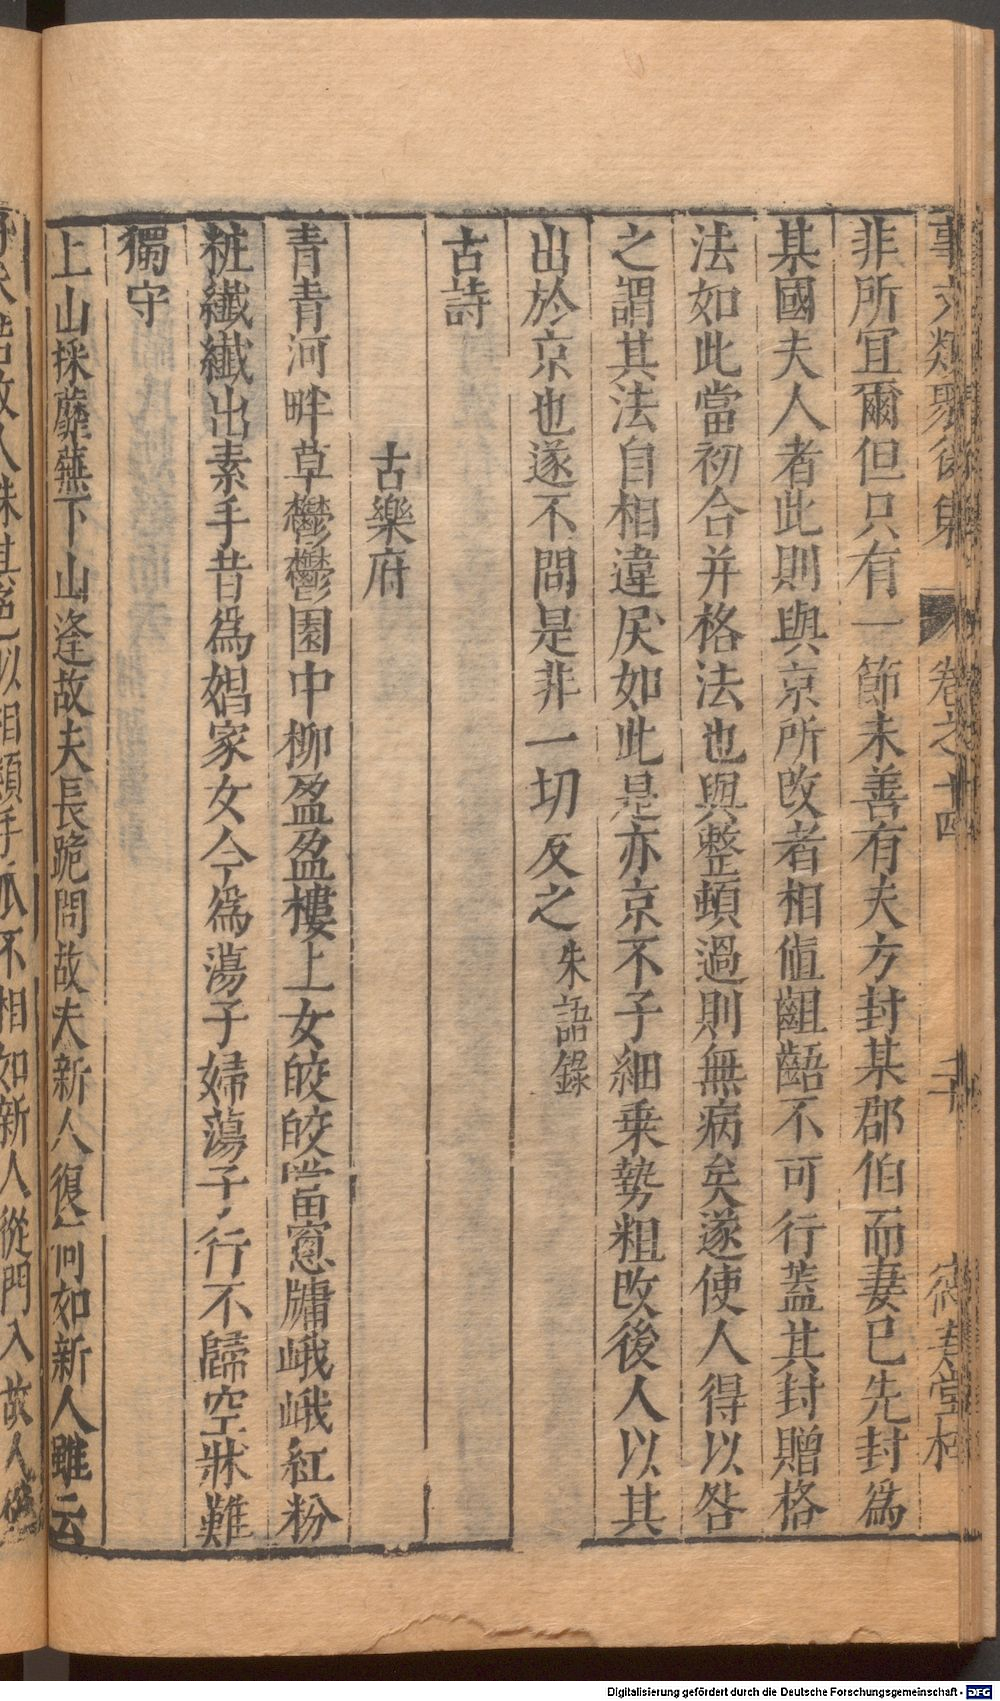 事文類聚後集 卷之十四 二十
非所冝爾但只有一節未善有夫方封某郡伯而妻已先封爲
某國夫人者此則與京所改者相值齟齬不可行蓋其封贈格
法如此當初合并格法也與整頓過則無病矣遂使人得以咎
之謂其法自相違戾如此是亦京不子細乗勢粗改後人以其
出於京也遂不問是非一切反之 朱語錄
古詩
古樂府
青青河畔草鬱鬱園中柳盈盈樓上女皎皎當窻牗峨峨紅粉
粧纖纖出素手昔爲娼家女今爲蕩子婦蕩子行不歸空牀難
獨守
上山採蘼蕪下山逢故夫長跪問故夫新人復何如新人雖云
故人姝其 色似相類手爪不相如新人從門入故人
Digitalisierung gefördert durch die Deutsche Forschungsgemeinschaft - DFG